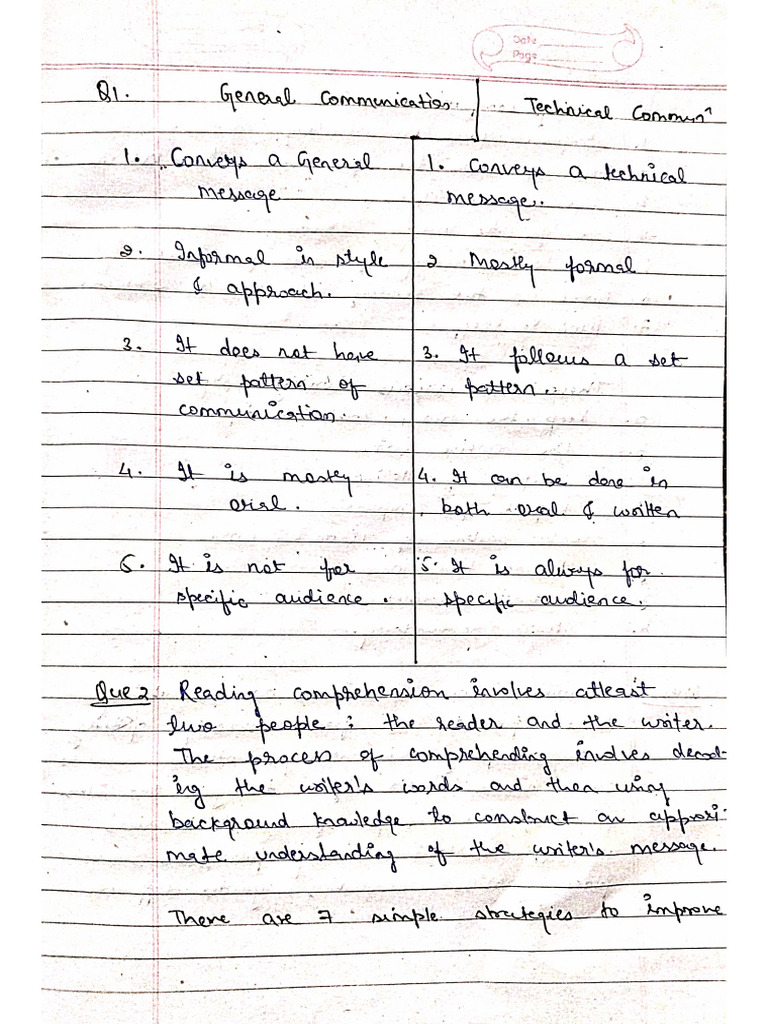 Date
Page
Q1. General Communication Technical Commun^n
1. Conveys a General 1. Conveys a technical
message message.
2. Informal in style 2 Mostly formal
& approach.
3. It does not have 3. It follows a set
set pattern of pattern.
communication.
4. It is mostly 4. It can be done in
oral. both oral & written
5. It is not for 5. It is always for
specific audience. specific audience.
Que 2 Reading comprehension involves atleast
two people : the reader and the writer.
The process of comprehending involves decod-
ing the writer's words and then using
background knowledge to construct an approxi-
mate understanding of the writer's message.
There are 7 simple strategies to improve